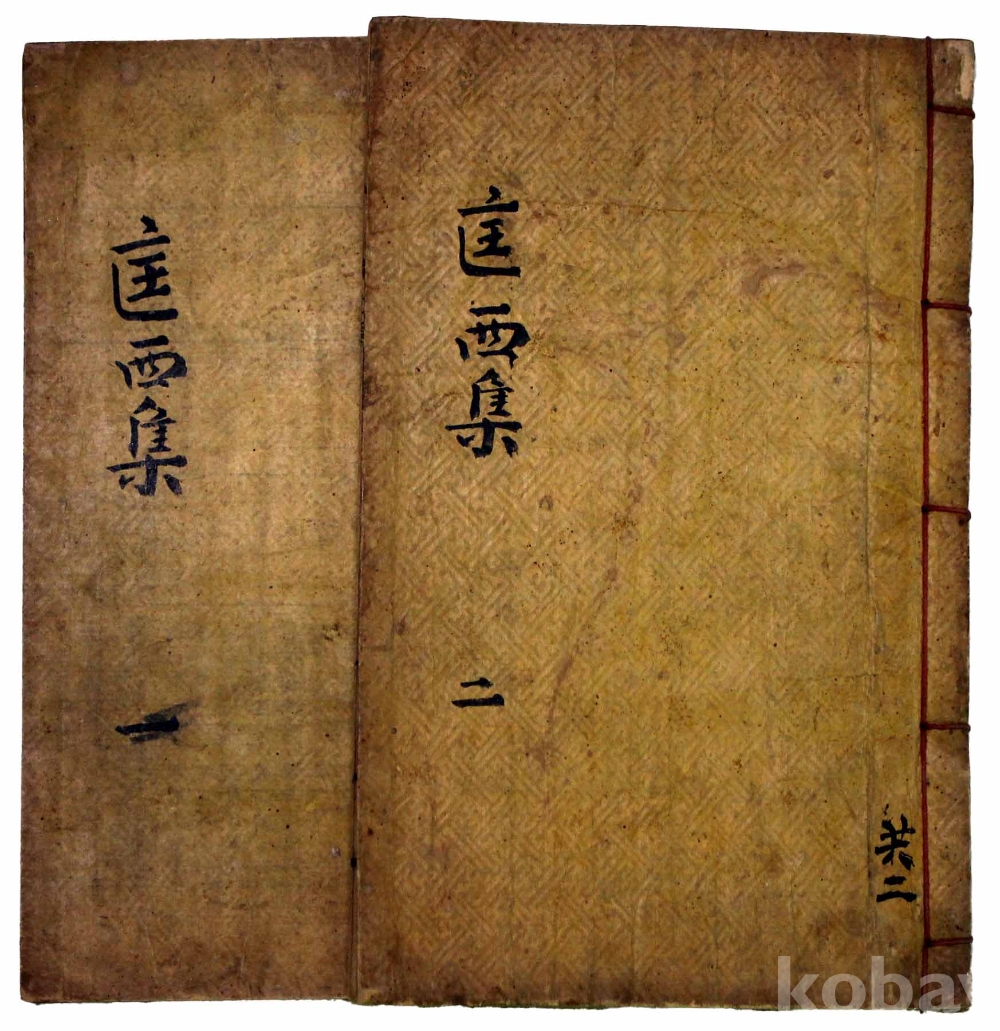 匡西集
一
匡西集
二
共二
kobay